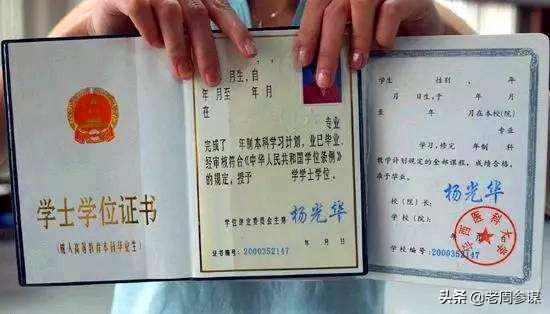 学士学位证书
(成人高等教育本科毕业生)
年 月生,自
年 月至 年 月
在
专业
完成了 年制本科学习计划,业已毕业,
经审核符合《中华人民共和国学位条例》
的规定,授予 学学士学位。
学位评定委员会主席 杨光华
证书编号:2000352147 年 月 日
学生 性别 , 年
月 日生,于 年
月 在本校(院)
专业
学习,修完 年 制 科
教学计划规定的全部课程,成绩合格,
准予毕业。
校(院)长: 杨光华
学校(院):
学校编号:2000352147
头条 @老周参谋